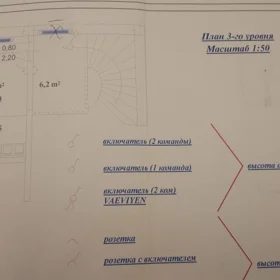 План 3-го уровня
Масштаб 1:50
0,80
2,20
6,2 m²
включатель (2 команды)
включатель (1 команда)
высота
включатель (2 ком)
VAEVIYEN
розетка
розетка с включателем